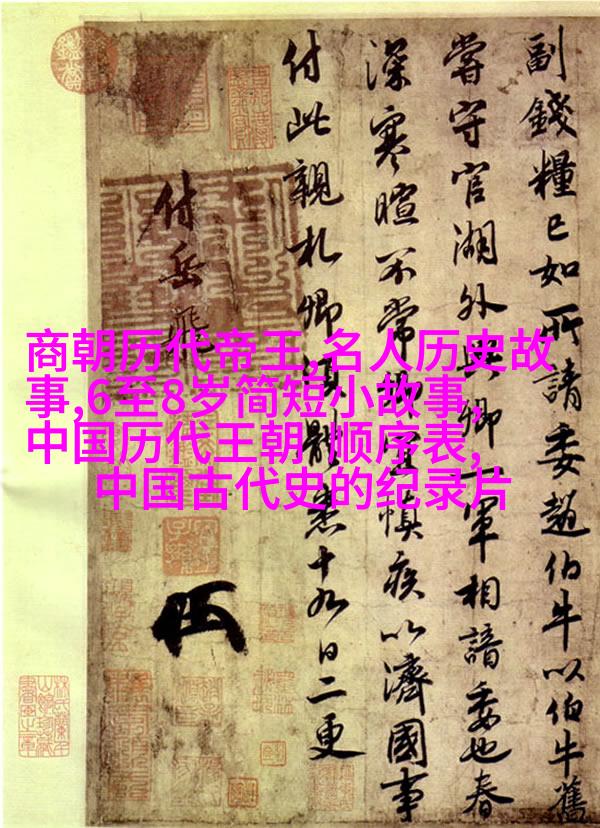 商朝历代帝王,名人历史故
事,6至8岁简短小故事,
中国历代王朝 顺序表,
中国古代史的纪录片
副錢糧已如所請委趙伯牛以伯牛舊
嘗守官湖外與卿一軍相諳委也春
深寒暄不常卿宜慎疾以濟國事
付此親札卿須體悉十九日二更
付岳飛